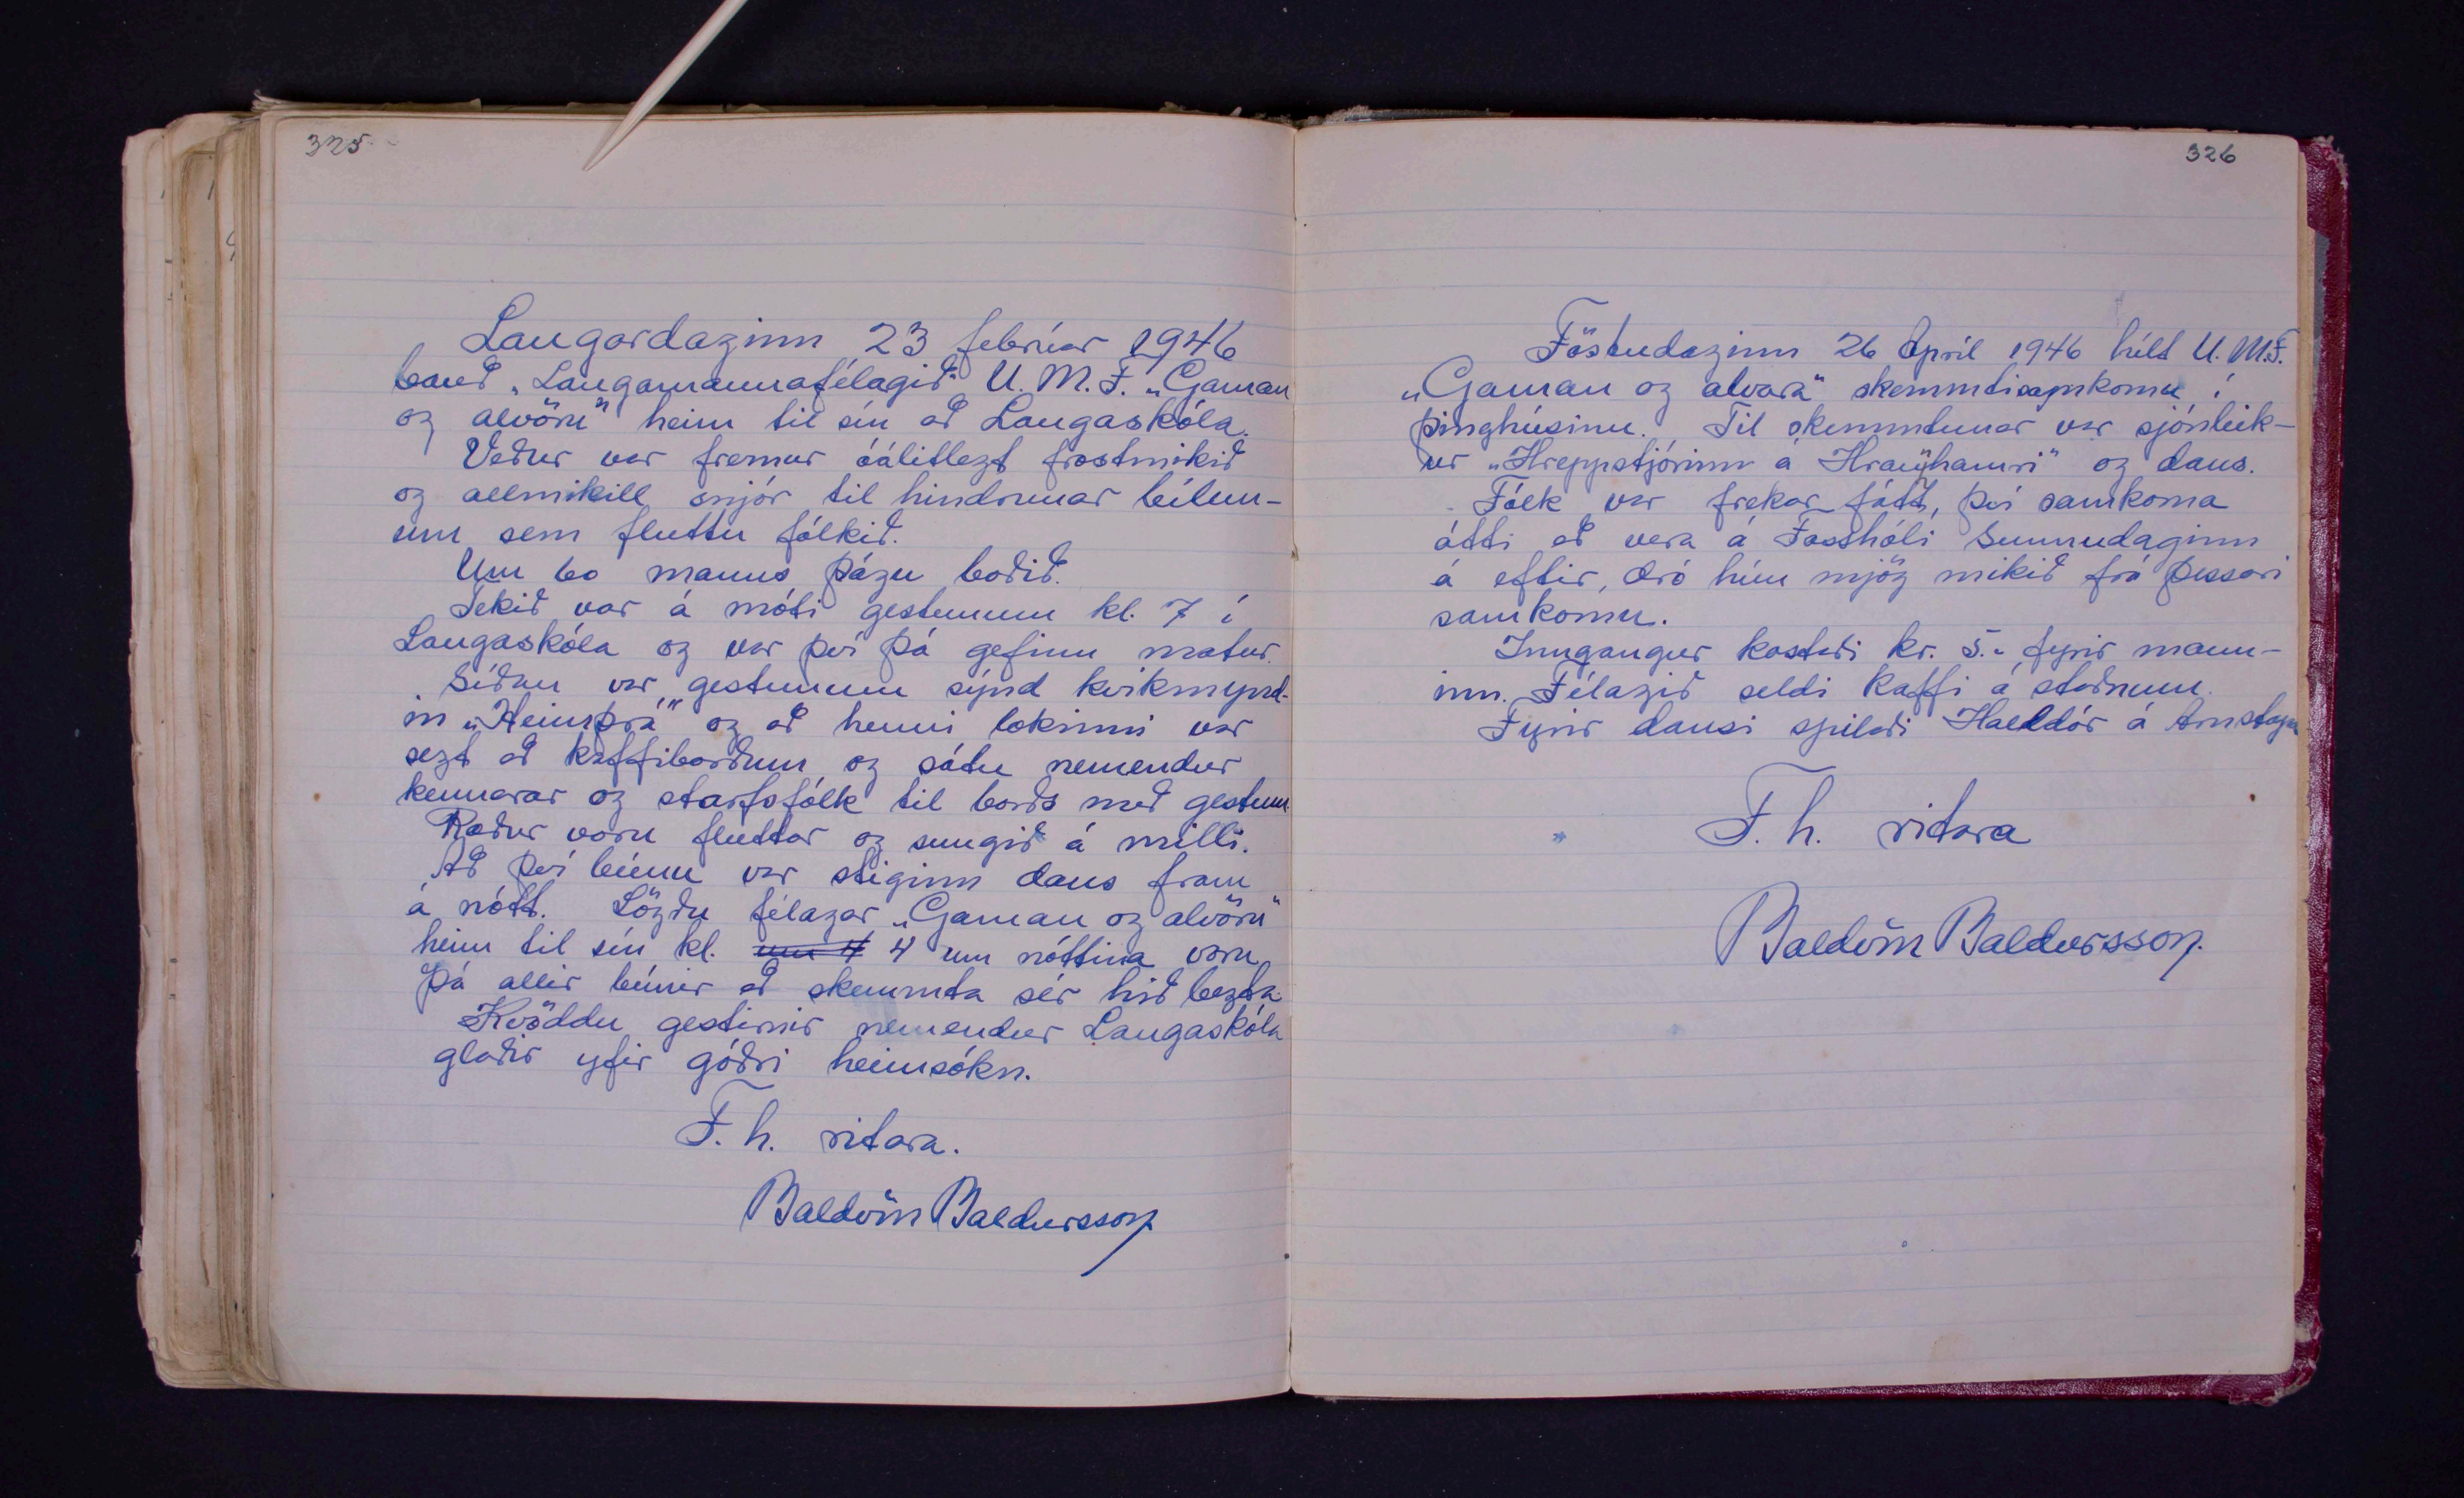 325
Laugardaginn 23 febrúar 1946
bauð „Laugamannafélagið" U.M.F. „Gaman
og alvöru" heim til sín að Laugaskóla.
Veður var fremur óálitlegt frostmikið
og allmikill snjór til hindrunar bílun-
um sem fluttu fólkið.
Um 60 manns þágu boðið.
Tekið var á móti gestunum kl. 7 í
Laugaskóla og var því þá gefinn matur.
Síðan var gestunum sýnd kvikmynd-
in „Heimþrá" og að henni lokinni var
sezt að kaffiborðum og sátu nemendur
kennarar og starfsfólk til borðs með gestum.
Ræður voru fluttar og sungið á milli.
Að því búnu var stiginn dans fram
á nótt. Lögðu félagar „Gaman og alvöru"
heim til sín kl. um 4 4 um nóttina voru
þá allir búnir að skemmta sér hið bezta.
Kvöddu gestirnir nemendur Laugaskóla
glaðir yfir góðri heimsókn.
F.h. ritara.
Baldvin Baldursson
326
Föstudaginn 26 Apríl 1946 hélt U.M.F.
„Gaman og alvara" skemmtisamkomu í
þinghúsinu. Til skemmtunar var sjónleik-
ur „Hreppstjórinn á Hraunhamri" og dans.
Fólk var frekar fátt, því samkoma
átti að vera á Fosshóli Sunnudaginn
á eftir, dró hún mjög mikið frá þessari
samkomu.
Inngangur kostaði kr. 5.- fyrir mann-
inn. Félagið seldi kaffi á staðnum.
Fyrir dansi spilaði Halldór á Arnstapa
F.h. ritara
Baldvin Baldursson.